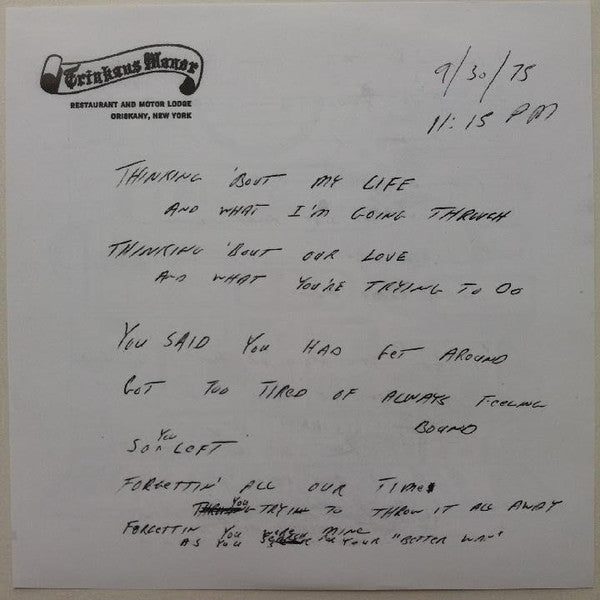 Trinkaus Manor
RESTAURANT AND MOTOR LODGE
ORISKANY, NEW YORK
9/30/75
11:15 PM
THINKING 'BOUT MY LIFE
AND WHAT I'M GOING THROUGH
THINKING 'BOUT OUR LOVE
AND WHAT YOU'RE TRYING TO DO
YOU SAID YOU HAD GET AROUND
GOT TOO TIRED OF ALWAYS FEELING
BOUND
SO YOU LEFT
FORGETTIN' ALL OUR TIMES
YOU TRYIN TO THROW IT ALL AWAY
FORGETTIN YOU WERE MINE
AS YOU YOUR "BETTER WAY"